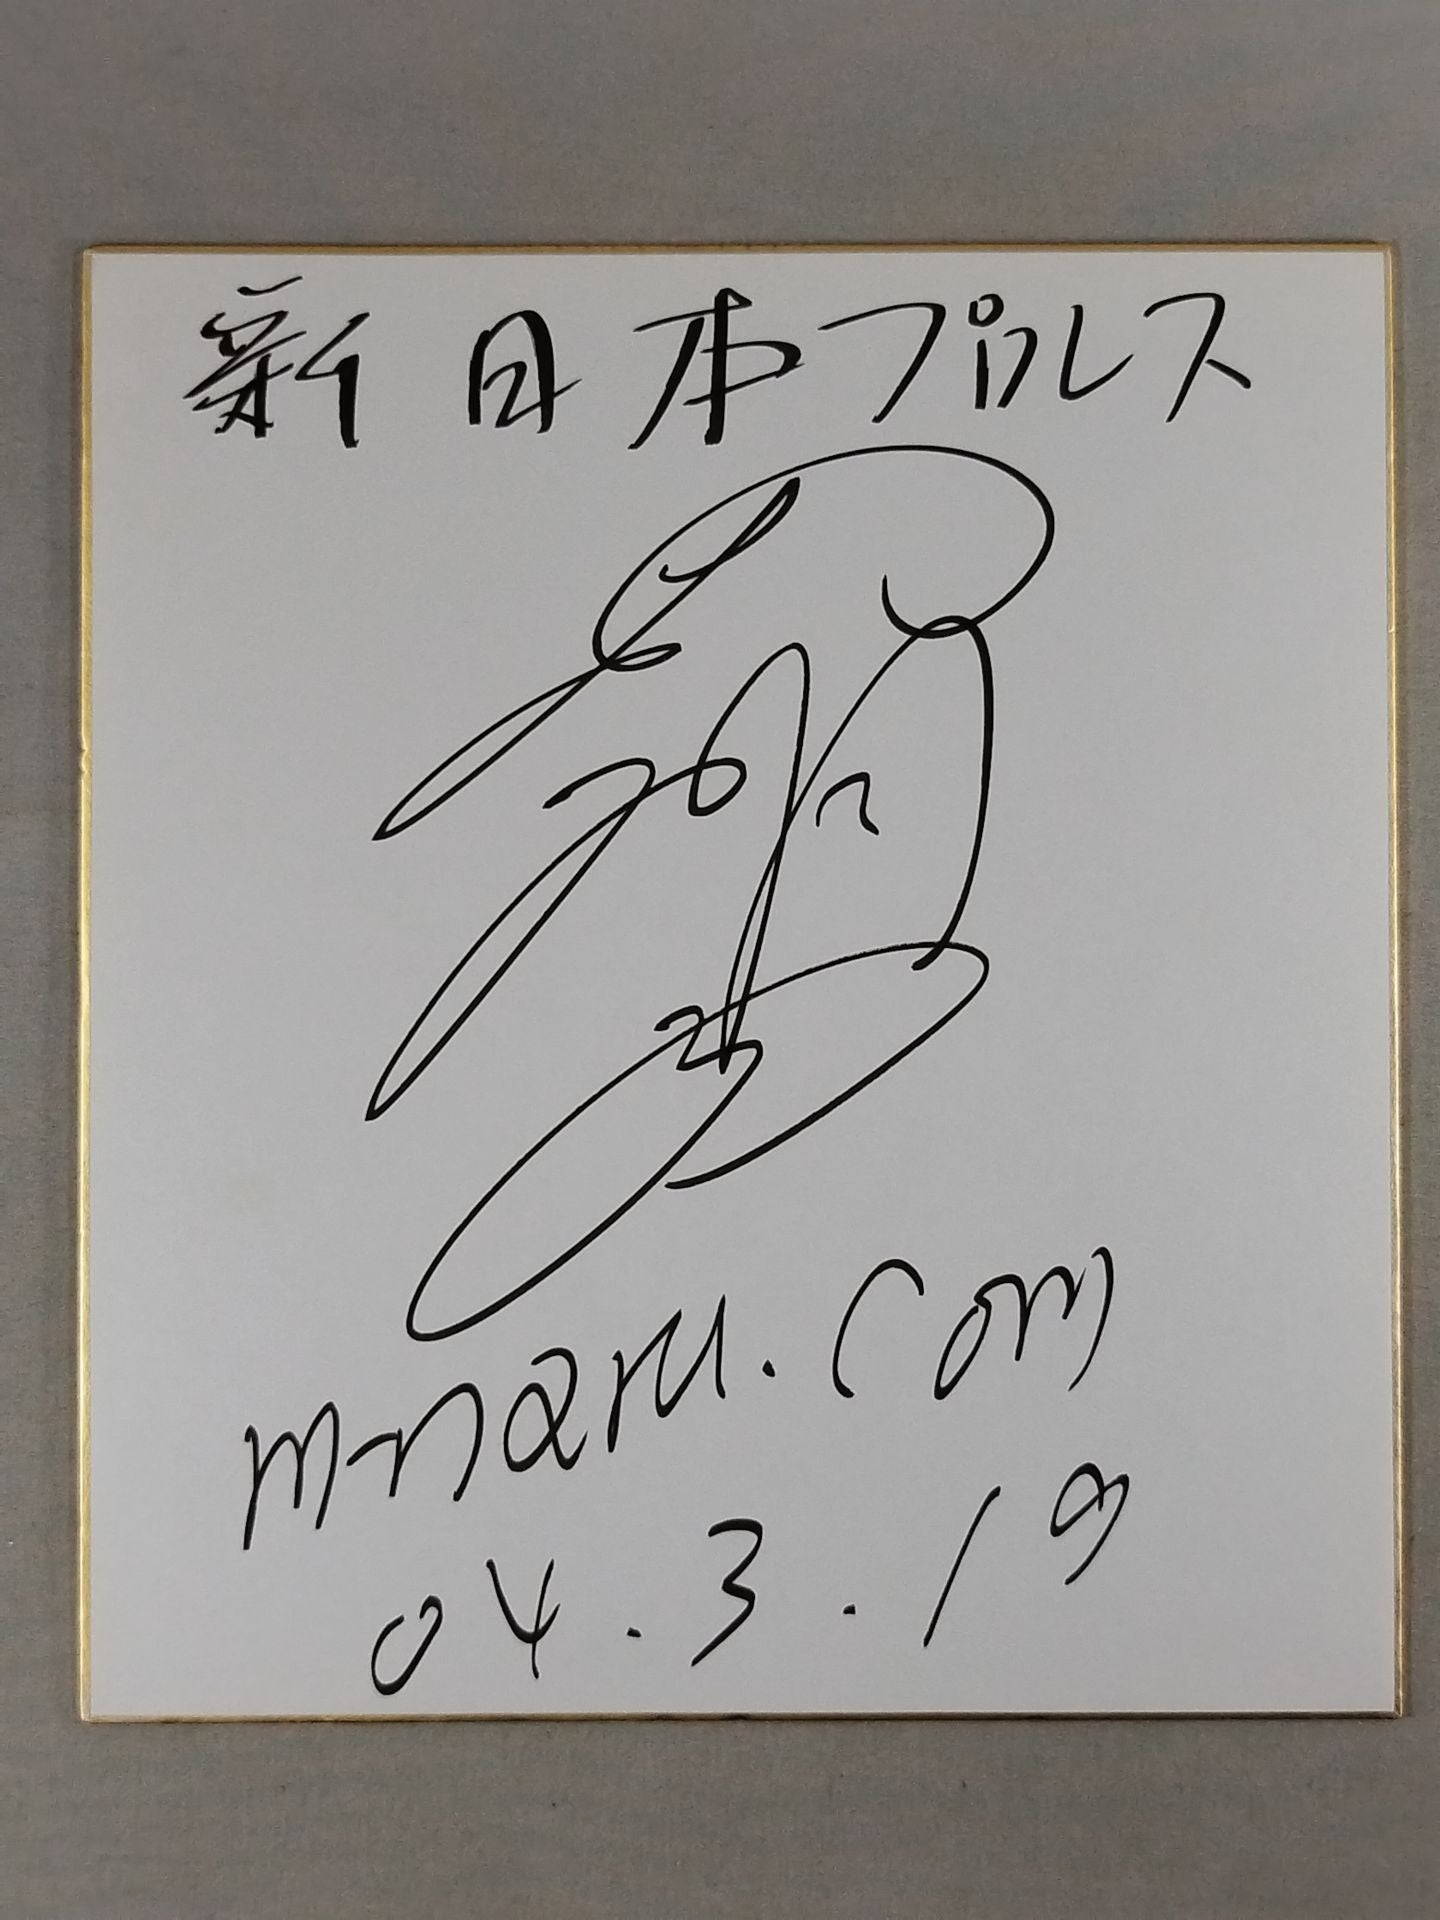 新日本プロレス
m-naru.com
04.3.19